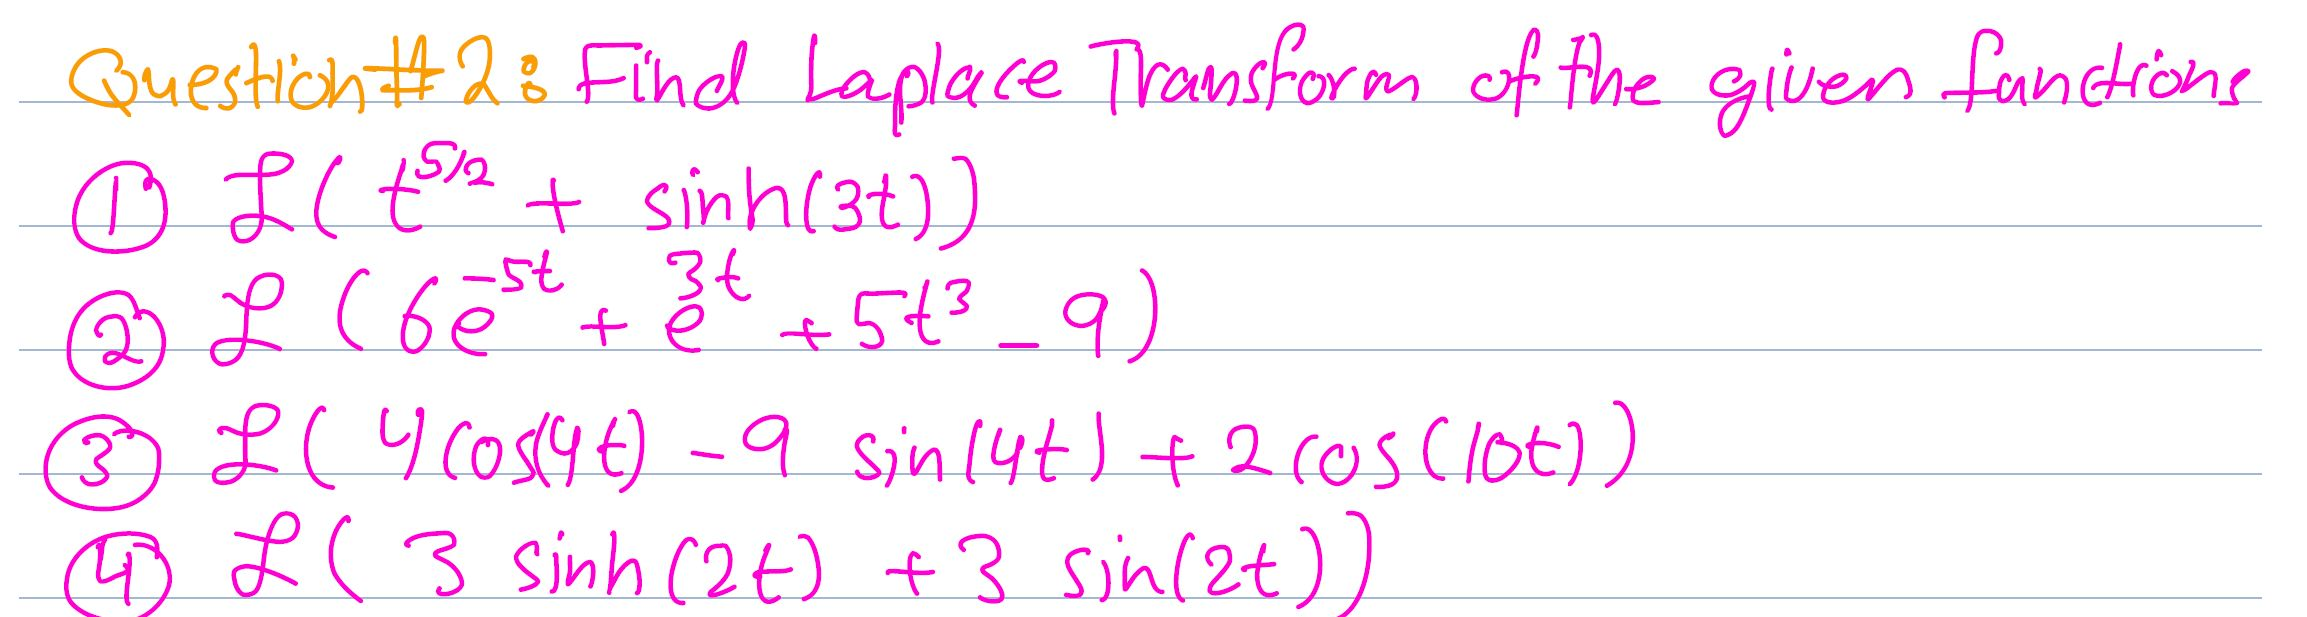 Question # 2: Find Laplace Transform of the given functions
① ℒ( t^{5/2} + sinh(3t))
② ℒ (6e^{-5t} + e^{3t} + 5t^3 - 9)
③ ℒ( 4cos(4t) - 9 sin(4t) + 2cos(10t))
④ ℒ( 3 sinh(2t) + 3 sin(2t))